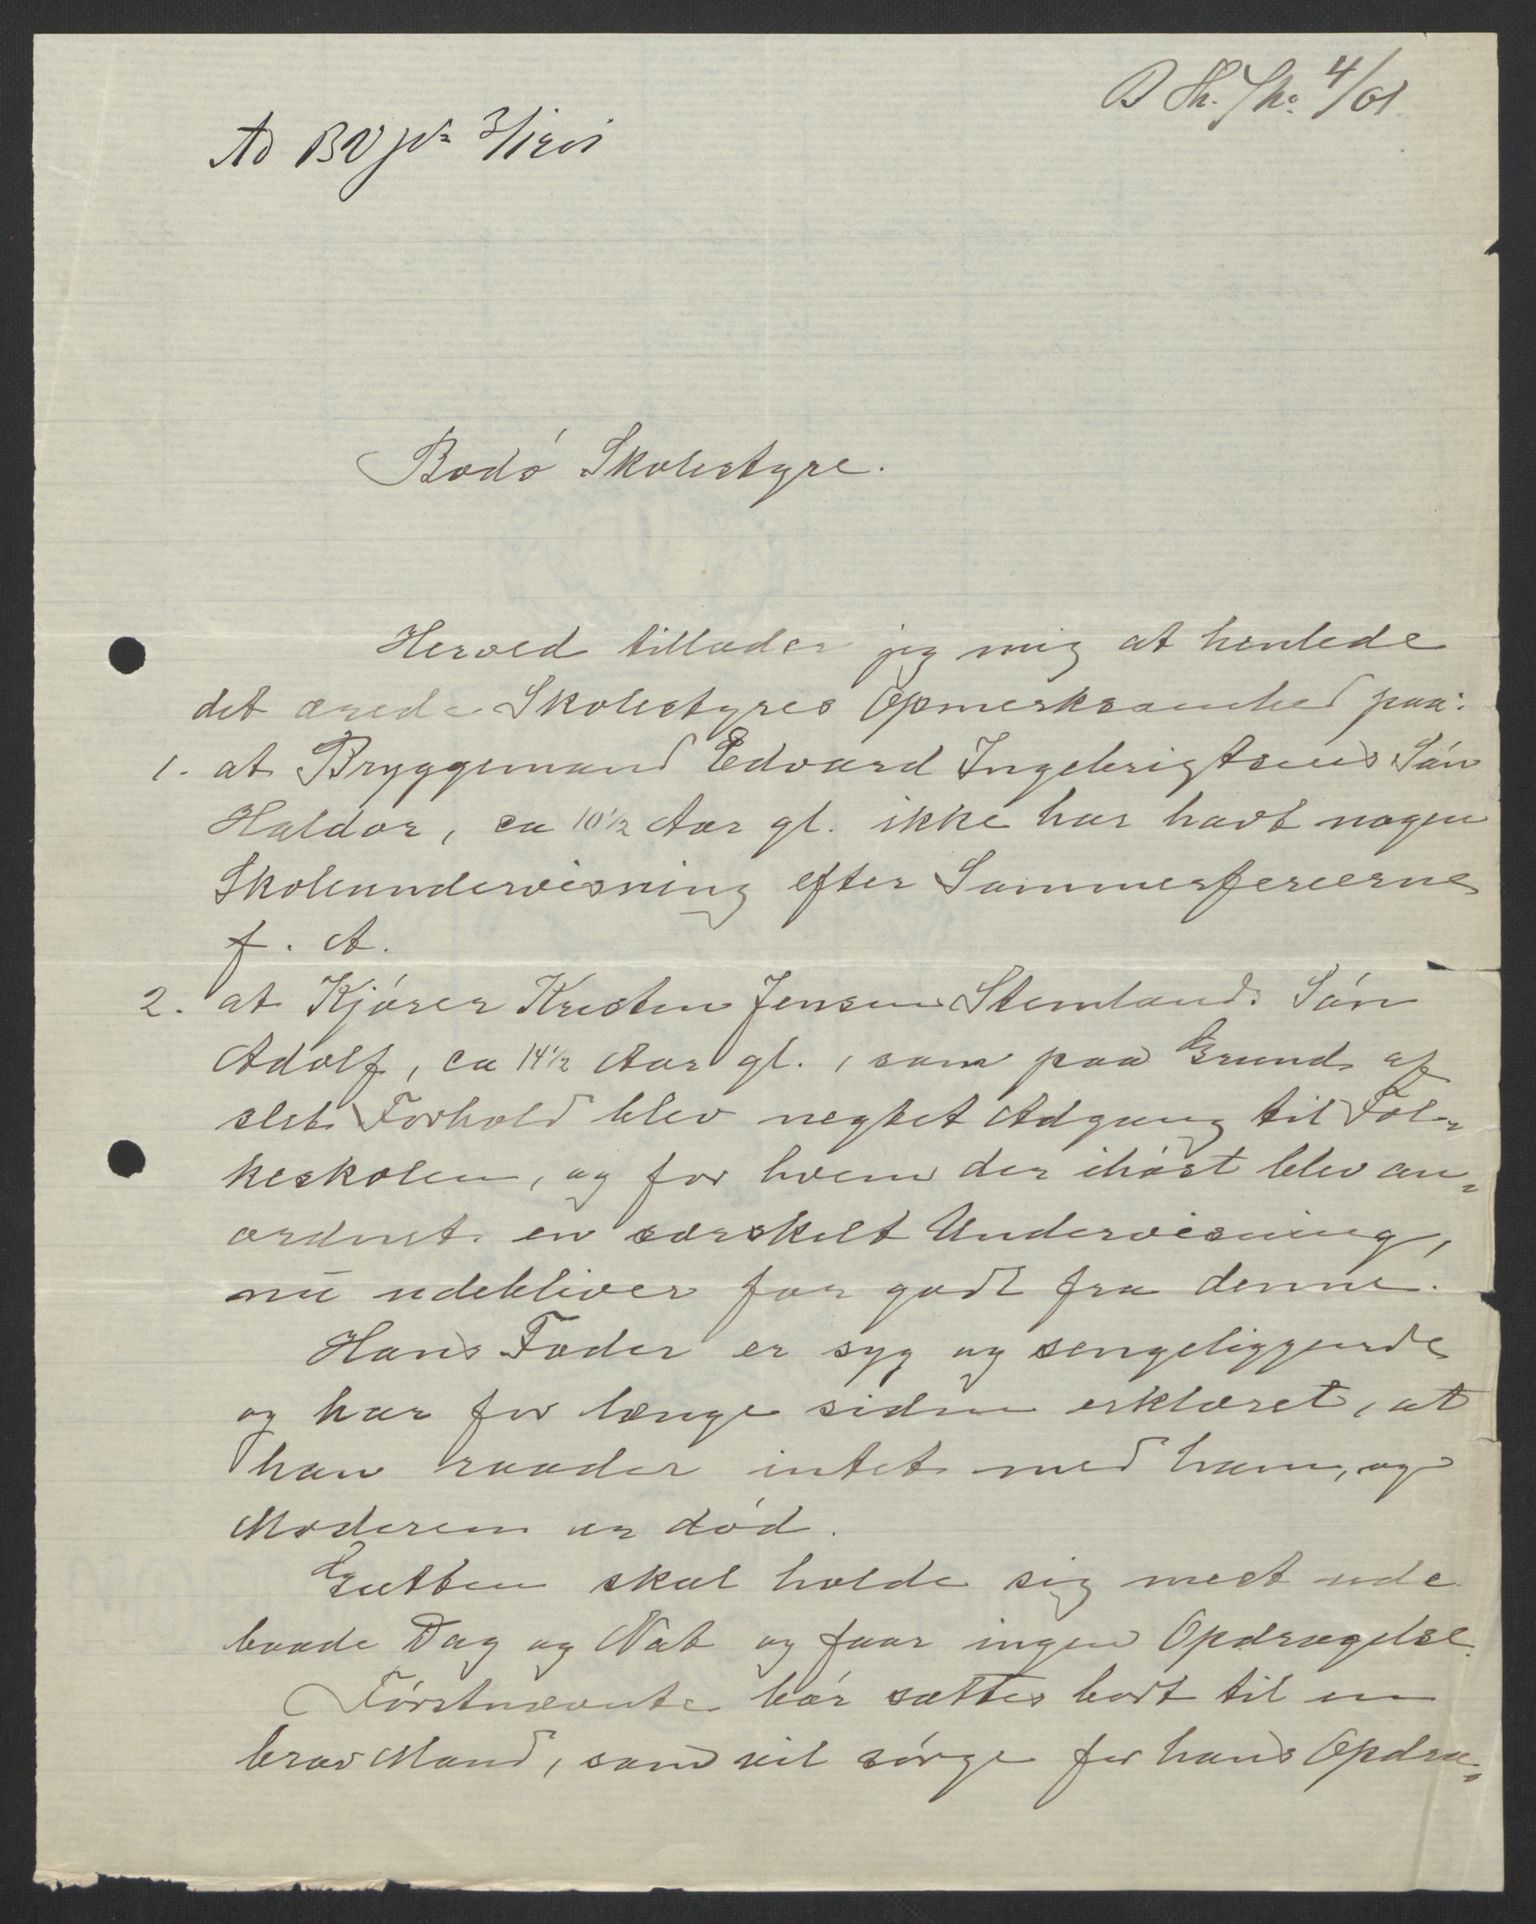 B Sk. Sk. 4/01.
Ad BV JNo 3/1901
Bodó Skolestyre.
Herved tillader jeg mig at henlede
det ærede Skolestyres Opmerksomhed paa:
1. at Bryggemand Edvard Ingebrigtsens Són
Haldor, ca 10 1/2 Aar gl. ikke har havt nogen
Skoleundervisning efter Sommerferierne
f. A.
2. at Kjórer Kristen Jensen Stemlands Són
Adolf, ca 14 1/2 Aar gl., som paa Grund af
slet Forhold blev negtet Adgang til Fol-
keskolen, og for hvem der ihóst blev an-
ordnet en særskilt Undervisning,
nu udebliver for godt fra denne.
Hans Fader er syg og sengeliggende
og har for længe siden erklæret, at
han raader intet med ham, og
Moderen er dód.
Gutten skal holde sig mest ude
baade Dag og Nat og faar ingen Opdragelse.
Fórstnævnte bór sættes bort til en
brav Mand, som vil sórge for hans Opdra-